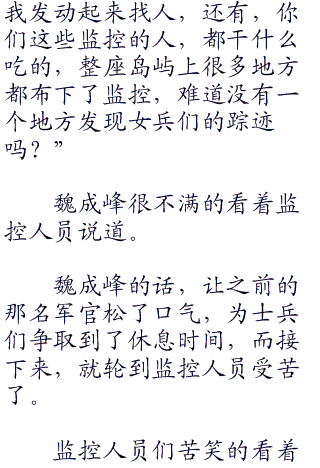 我发动起来找人，还有，你
们这些监控的人，都干什么
吃的，整座岛屿上很多地方
都布下了监控，难道没有一
个地方发现女兵们的踪迹
吗？”
魏成峰很不满的看着监
控人员说道。
魏成峰的话，让之前的
那名军官松了口气，为士兵
们争取到了休息时间，而接
下来，就轮到监控人员受苦
了。
监控人员们苦笑的看着